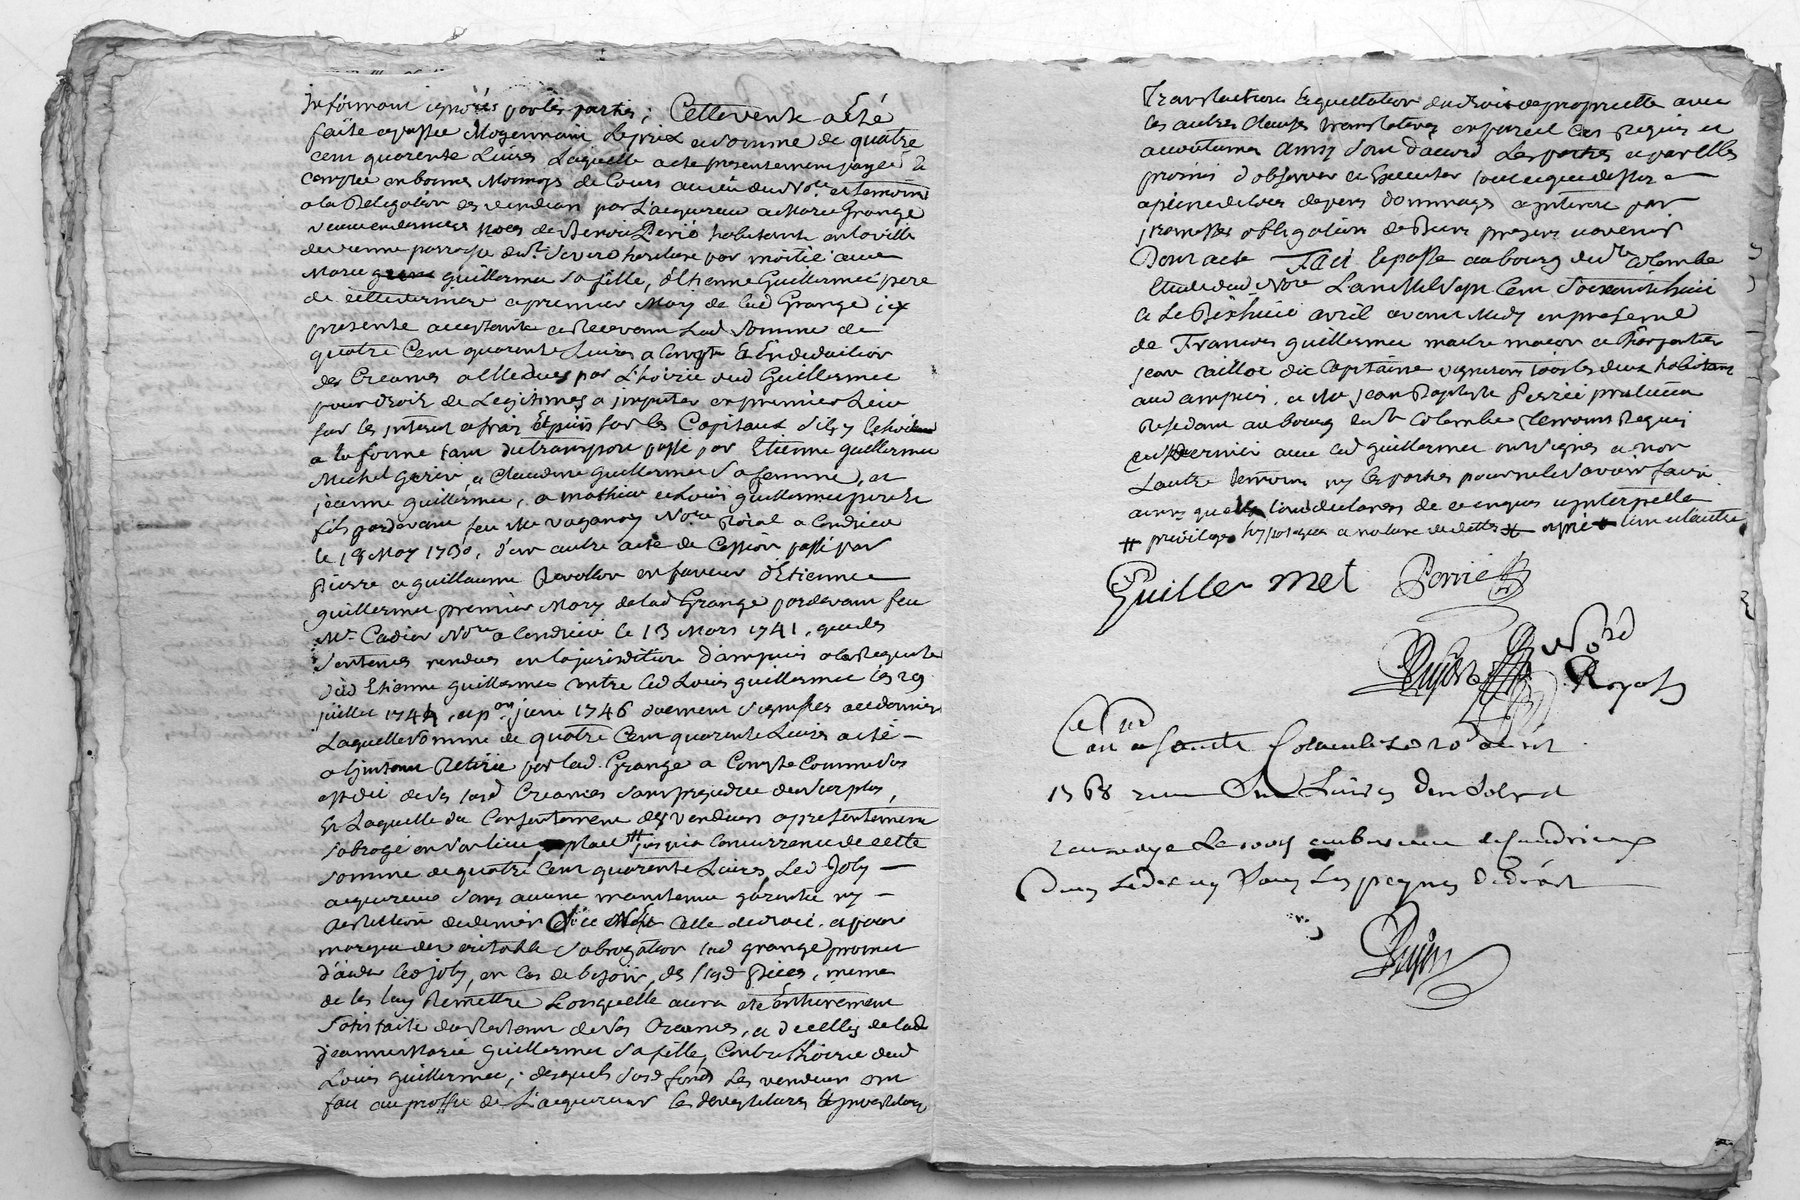 informant ignorées par les parties ; Cette vente a Eté
faite et passée Moyennant Le prix et somme de quatre
cent quarente Livres Laquelle a ete presentement payée &
comptée en bonnes Monnoys de Cours au vëu dud Nore et temoins
a la Delegation des vendeurs par L'acquereur a Marie Grange
veuve en dernieres noces de Benoit Perié habitante en la ville
de vienne parroisse de st Severe heritiere par moitié avec
Marie Guillermet sa fille, d'Etienne Guillermet pere
de cette derniere et premier Mary de lad Grange icy
presente acceptante et Recevant Lad Somme de
quatre Cent quarente Livres a Compte Et En deduction
des Creances a Elle dues par L'hoirie dud Guillermet
pour droit de Legitimes a imputer en premier Lieu
sur les interets et frais Et puis sur les Capitaux s'il y
a la forme tant du transport passé par Etienne guillermet
Michel Gerin, et Claudine Guillermet sa femme, et
jeanne guillermet, a mathieu et Louis guillermet pere et
fils pardevant feu Me vaganay Nore Roial a Condrieu
le 18 May 1730, d'un autre acte de Cession passé par
Pierre et guillaume Revollon en faveur d'Etienne
guillermet premier Mary de lad Grange pardevant feu
Me Cadier Nore a Condrieu le 13 Mars 1741, que des
Sentences rendues en la jurisdiction d'ampuis a la Requete
dud Etienne guillermet contre led Louis guillermet les 29
juillet 1744, et per juin 1746 duement signifiées
Laquelle somme de quatre Cent quarente Livres a eté
a l'instant Retirée par lad Grange a Compte Comme sus
est dit de ses susd Creances sans prejudice du surplus,
Et Laquelle du Consentement des vendeurs a presentement
subrogé en son lieu, place # jusqu'a Concurrence de cette
somme de quatre Cent quarente Livres, Led Joly
acquereur sans aucune maintenue garentie ny
restitution de deniers si ce n'est Celle de droit, et pour
marque de veritable subrogation lad grange promet
d'aider led joly, en Cas de besoin, des susd Pieces, même
de les luy Remettre Lorsqu'elle aura eté Entierement
satisfaite du Restant de ses Creances, et de celles de lad
jeanne Marie guillermet sa fille, Contre l'hoirie dud
Louis guillermet ; desquels susd fonds Les vendeurs ont
fait au proffit de L'acquereur les devestitures Et investitures
Translations Et quittation du droit de proprieté avec
les autres Clauses translatives en pareil Cas Requis et
accoutumés ainsy sont d'accord Les parties et par Elles
promis d'observer et Executer tout ce que dessus
a peine de tous depens dommages et interets par
iremises obligation de Biens presens et avenirs
Dont acte Fait et passé au bourg de ste Colombe
Etude dud Nore L'an Mil Sept Cent Soixante huit
et Le Dixhuit avril avant Midy en presence
de François guillermet maitre maçon et Charpentier
jean caillot dit Capitaine vigneron tous les deux habitans
aud ampuis, et Me jean Baptiste Perrié praticien
Residant au bourg de ste Colombe temoins Requis
ce dernier avec led guillermet ont signés et non
L'autre temoin ny les parties pour ne le savoir faire
ainsy qu'elles l'ont declarés de ce enquis et interpellés
# privilege hypoteques et nature de dette
Guiller met Perrié
Dujon Nore
Royal
Conlé a Sainte Colombe Le 20 avril
1768 reçu
renvoyé Le au bureau de Condrieux

Dujon